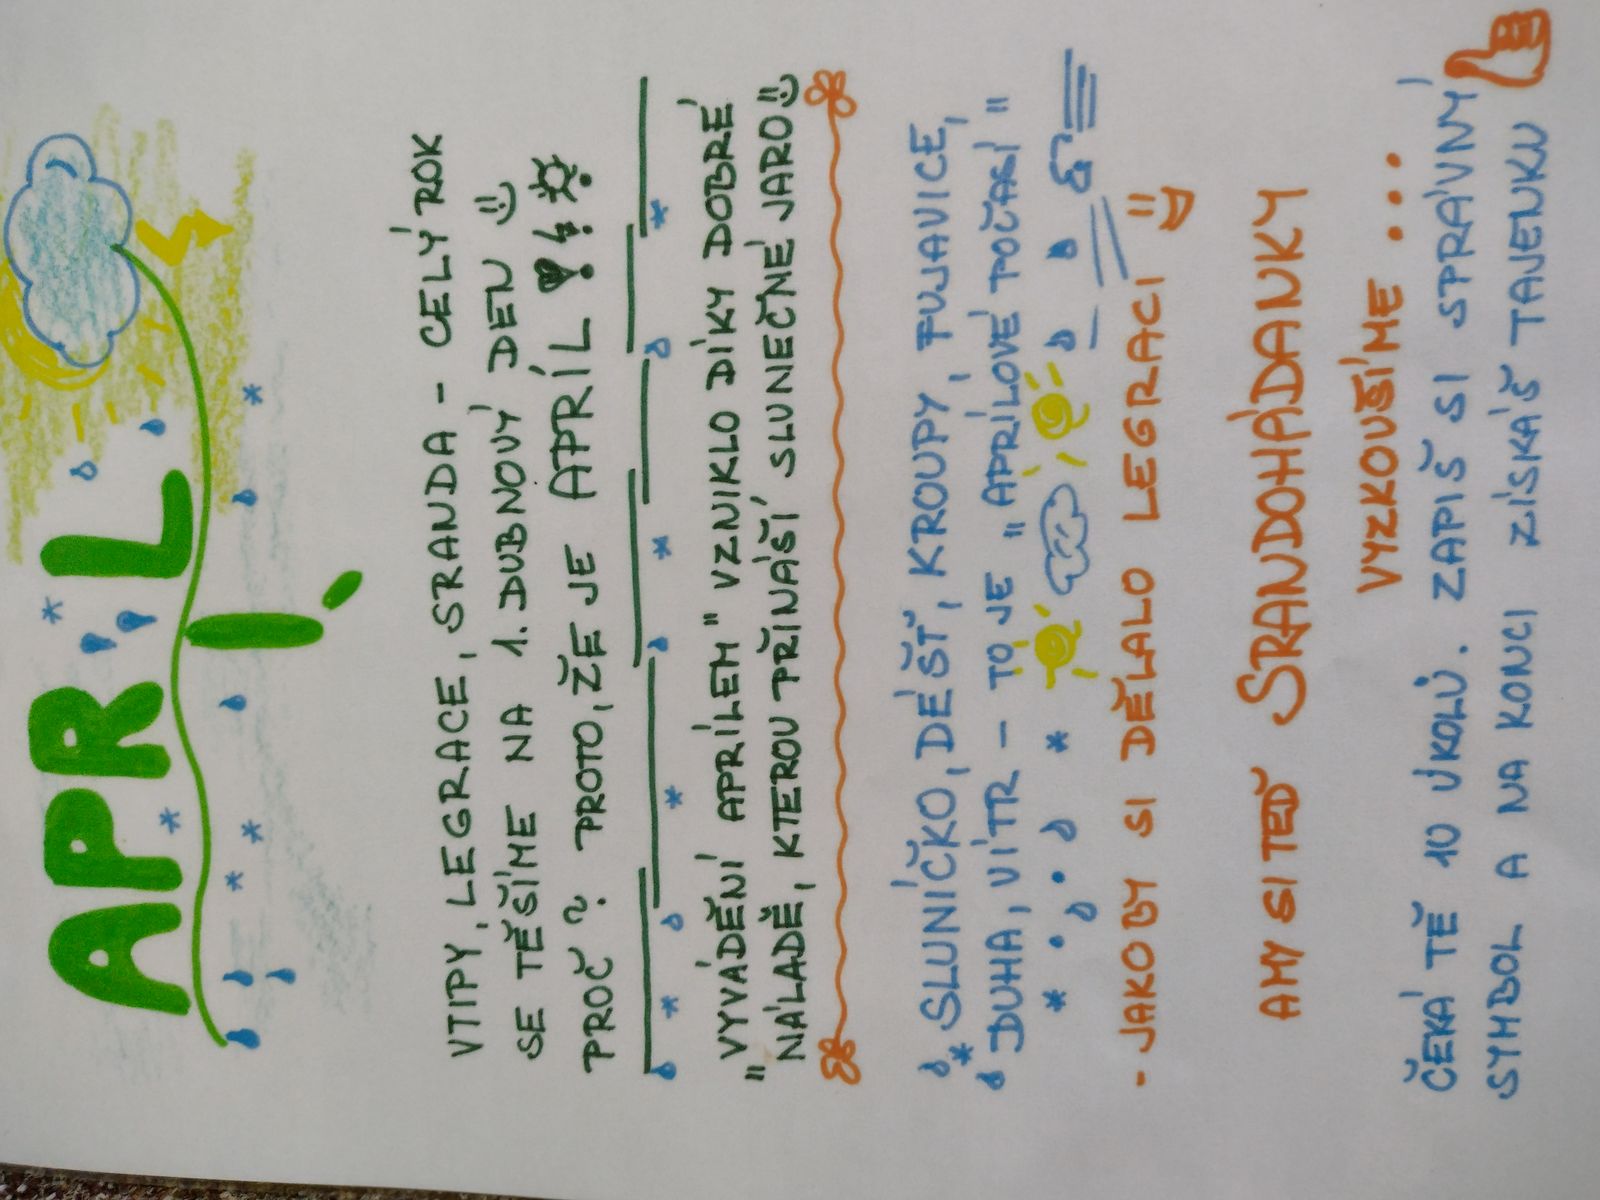 APRÍL
VTIPY, LEGRACE, SRANDA - CELÝ ROK
SE TĚŠÍME NA 1. DUBNOVÝ DEN
PROČ? PROTO, ŽE JE APRÍL !!!
"VYVÁDĚNÍ APRÍLEM" VZNIKLO DÍKY DOBRÉ
NÁLADĚ, KTEROU PŘINÁŠÍ SLUNEČNÉ JARO
SLUNÍČKO, DÉŠŤ, KROUPY, FUJAVICE,
DUHA, VÍTR - TO JE "APRÍLOVÉ POČASÍ"
- JAKOBY SI DĚLALO LEGRACI
A MY SI TEĎ SRANDOHÁDANKY
VYZKOUŠÍME ...
ČEKÁ TĚ 10 ÚKOLŮ. ZAPIŠ SI SPRÁVNÝ
SYMBOL A NA KONCI ZÍSKÁŠ TAJENKU